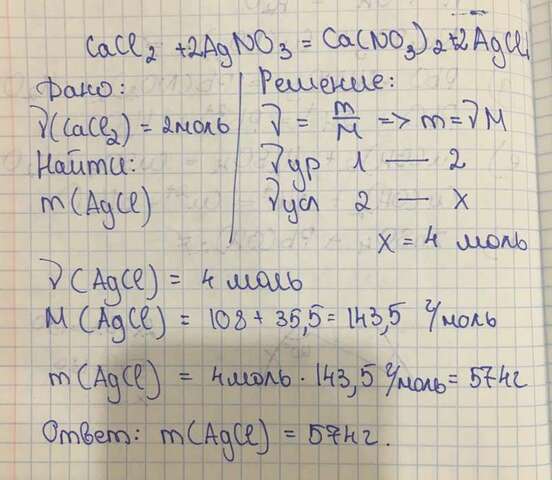 CaCl2 + 2AgNO3 = Ca(NO3)2 + 2AgCl↓
Дано:
ν(CaCl2) = 2 моль
Найти:
m(AgCl)
Решение:
ν = m/M => m = νM
νур 1 — 2
νусл 2 — x
x = 4 моль
ν(AgCl) = 4 моль
M(AgCl) = 108 + 35,5 = 143,5 г/моль
m(AgCl) = 4 моль · 143,5 г/моль = 574 г
Ответ: m(AgCl) = 574 г.